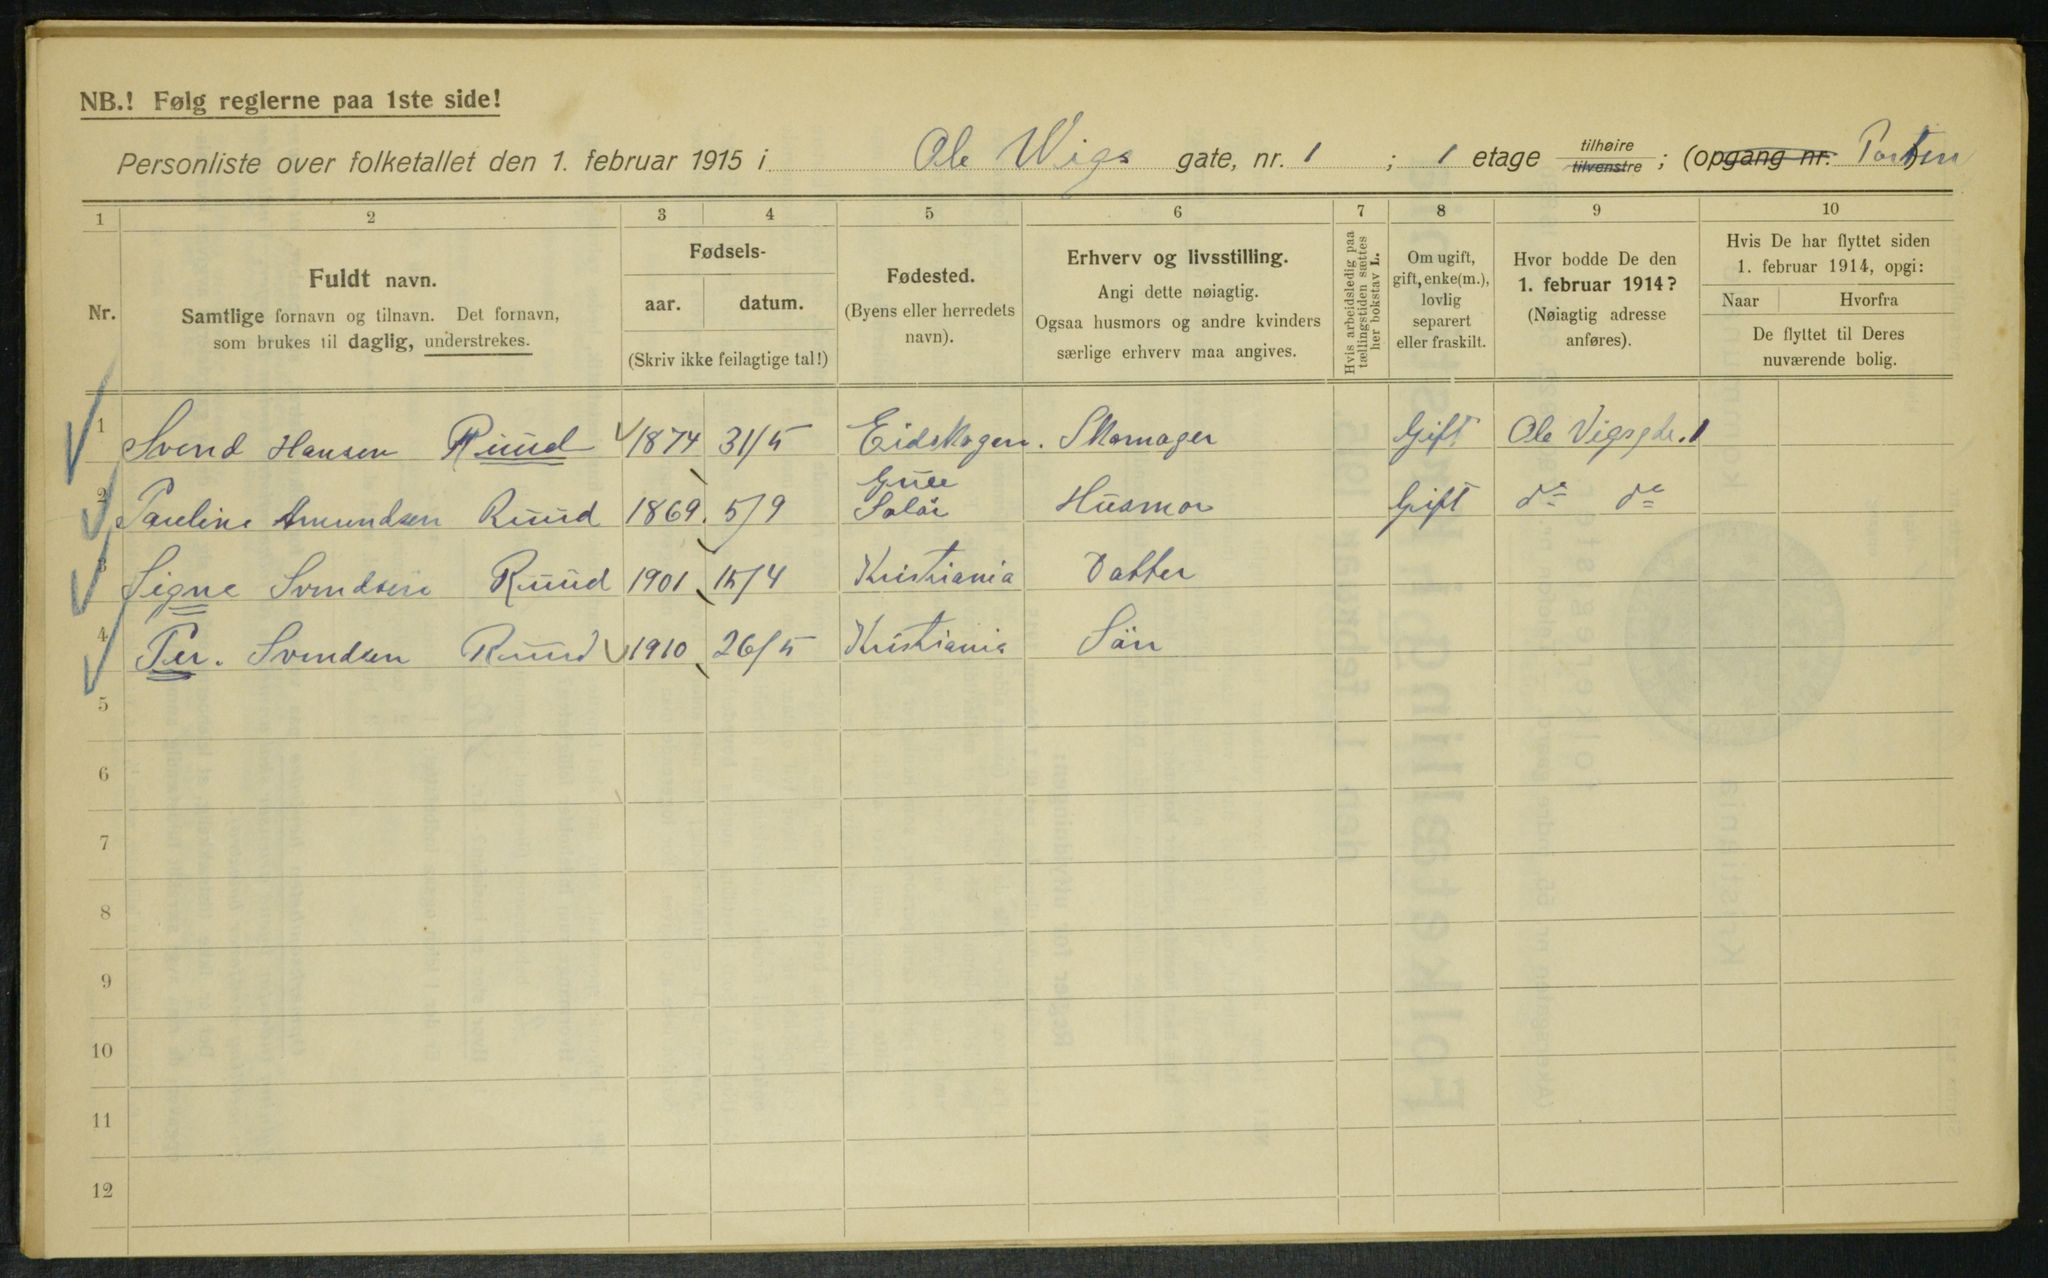 NB.! Følg reglerne paa 1ste side!
Personliste over folketallet den 1. februar 1915 i Ole Wigs gate, nr. 1 ; 1 etage tilhøire tilvenstre ; (opgang nr. Porten)
1 2 3 4 5 6 7 8 9 10
Nr.
Fuldt navn.
Samtlige fornavn og tilnavn. Det fornavn,
som brukes til daglig, understrekes.
Fødsels-
aar. datum.
(Skriv ikke feilagtige tal!)
Fødested.
(Byens eller herredets
navn).
Erhverv og livsstilling.
Angi dette nøiagtig.
Ogsaa husmors og andre kvinders
særlige erhverv maa angives.
Hvis arbeidsledig paa
tællingstiden sættes
her bokstav L.
Om ugift,
gift, enke(m.),
lovlig
separert
eller fraskilt.
Hvor bodde De den
1. februar 1914?
(Nøiagtig adresse
anføres).
Hvis De har flyttet siden
1. februar 1914, opgi:
Naar Hvorfra
De flyttet til Deres
nuværende bolig.
1 Svend Hansen Ruud 1874 31/5 Eidskogen. Skomager Gift Ole Vigsgde. 1
2 Pauline Amundsen Ruud 1869. 5/9 Grue Solör Husmor Gift do do
3 Signe Svendsen Ruud 1901 15/4 Kristiania Datter
4 Per. Svendsen Ruud 1910 26/5 Kristiania Sön
5
6
7
8
9
10
11
12